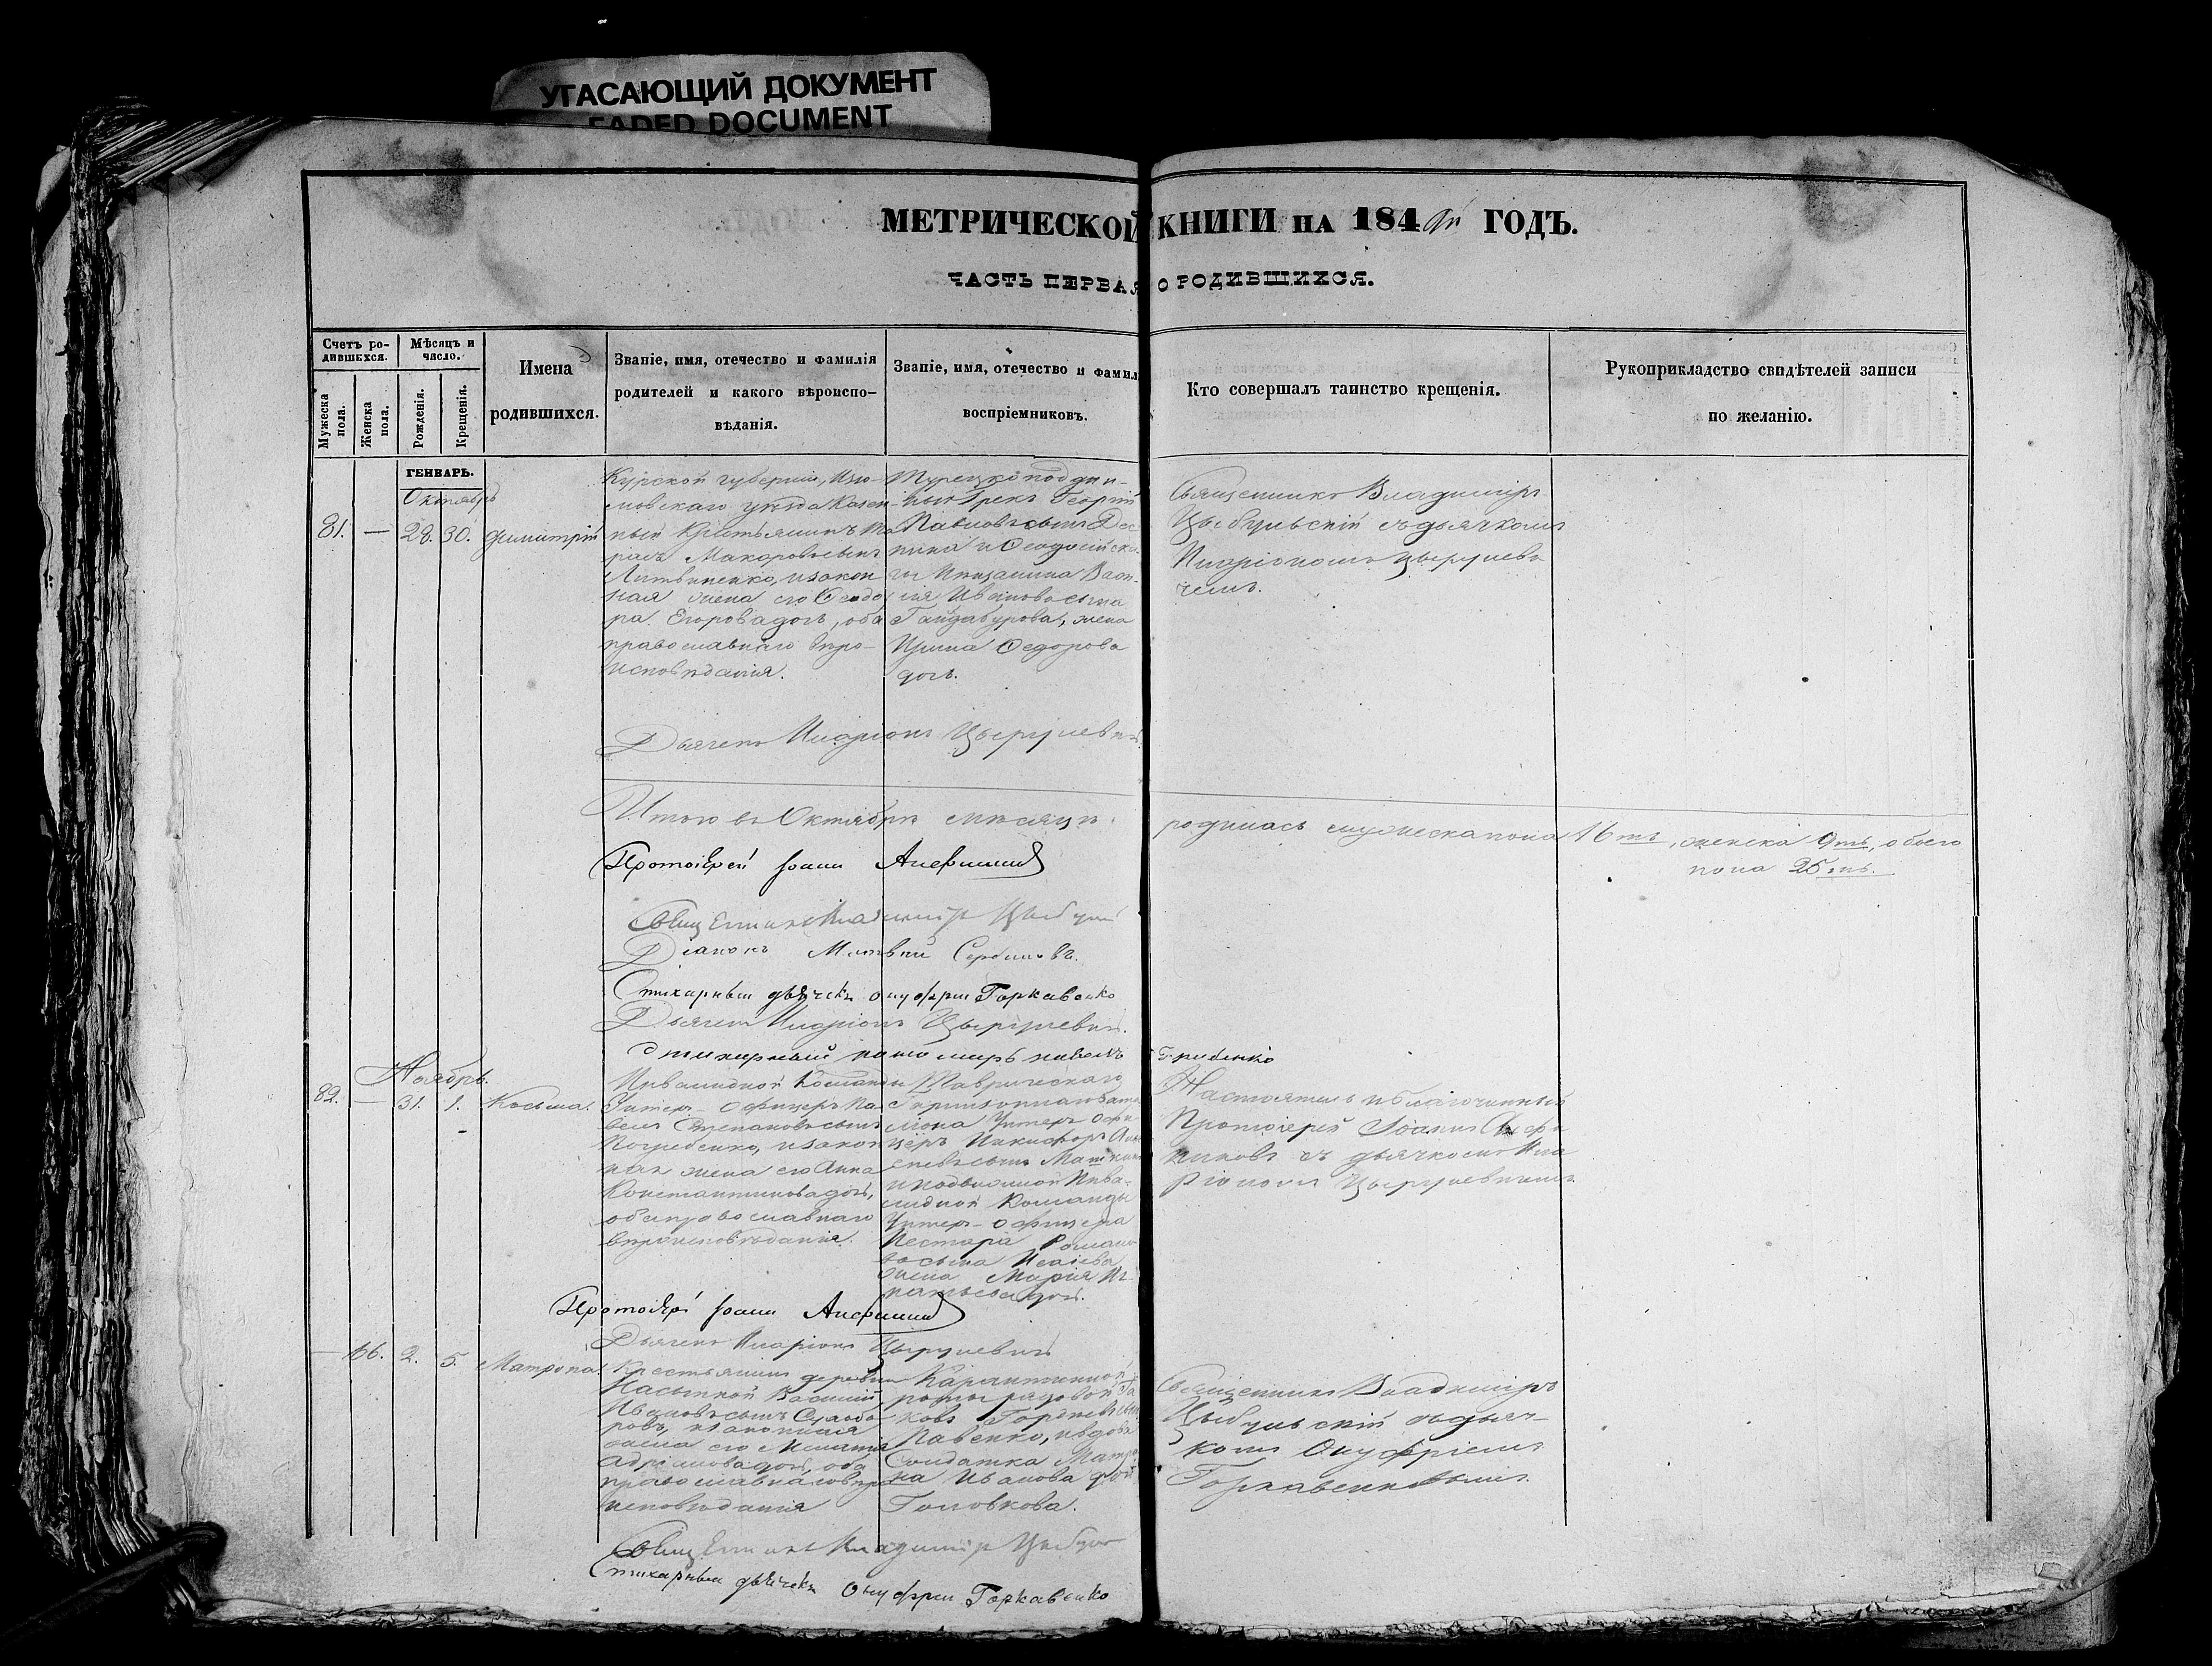 УГАСАЮЩИЙ ДОКУМЕНТ
FADED DOCUMENT
МЕТРИЧЕСКОЙ КНИГИ НА 184 ГОДЪ.
ЧАСТЬ ПЕРВАЯ О РОДИВШИХСЯ.
Счетъ родившихся.
Мужеска пола.
Женска пола.
Мѣсяцъ и число.
Рожденія.
Крещенія.
Имена родившихся.
Званіе, имя, отечество и фамилія
родителей и какого вѣроиспо-
вѣданія.
Званіе, имя, отечество и фамил
воспріемниковъ.
Кто совершалъ таинство крещенія.
Рукоприкладство свидѣтелей записи
по желанію.
ГЕНВАРЬ.
Октябрь
81. — 28. 30. Димитрій
Курской губерніи,
уѣзда Казен-
ный крестьянинъ
Макаровъ сынъ
Литвиненко, и закон
ная жена его Феодо
ра Егорова дочь, оба
православнаго вѣро-
исповѣданія.
Турецко поддан-
ный Грекъ Георгій
Павловъ сынъ
и Феодосійска
го Мѣщанина Васи-
лія Иванова сына
Гайдабурова, жена
Ирина Федорова
дочь.
Священникъ Владиміръ
Цыбульскій съ дьячкомъ
Иларіономъ Цыруліеви
чемъ.
Дьячекъ Иларіонъ
Итого въ Октябрѣ мѣсяцѣ родилось мужеска пола 16ть, женска 9ть, обоего
пола 25ть.
Протоіерей Іоаннъ
Священникъ Владиміръ
Діаконъ Матвѣй Сербиновъ.
Стихарный дьячекъ Онуфрій Горкавенко
Дьячекъ Иларіонъ
Стихарный пономарь
Ноябрь.
82. — 31. 1. Косьма.
Инвалидной Команды
Унтеръ-офицеръ Па-
велъ Степановъ сынъ
Погребенко, и закон
ная жена его Анна
Константинова дочь,
оба православнаго
вѣроисповѣданія.
Таврическаго
Гарнизоннаго бата
ліона Унтеръ офи-
церъ Никифоръ
сынъ
и подвижной Инва-
лидной Команды
Унтеръ-офицера
Нестара Романо
ва сына Исаіева
жена Марія Иг
натьева дочь.
Настоятель и благочинный
Протоіерей Іоаннъ
съ дьячкомъ Ила
ріономъ Цыруліевичемъ.
Протоіерей Іоаннъ
Дьячекъ Иларіонъ
— 66. 2. 5. Матрона.
Крестьянинъ деревни
Насыпной Василій
Ивановъ сынъ
и законная
жена его Меланія
Адріанова дочь, оба
православнаго вѣро
исповѣданія
Карантинной
роты рядовой
сынъ
Павенко, и вдова
Солдатка Матро
на Иванова дочь
Головкова.
Священникъ Владиміръ
Цыбульскій съ дьяч-
комъ Онуфріемъ
Горкавенковымъ.
Священникъ Владиміръ
Стихарный дьячекъ Онуфрій Горкавенко